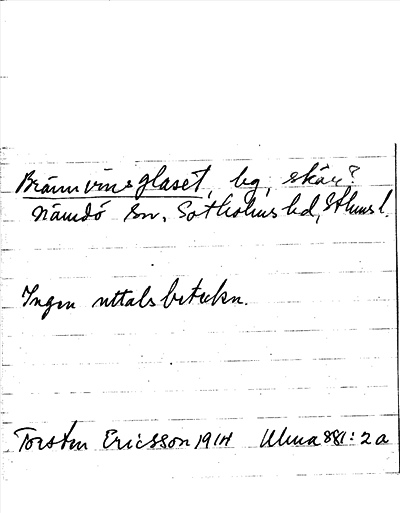 Brännvinsglaset, bg, skär?
Nämdö sn, Sotholms hd, Sthms l.
Ingen uttalsbetekn.
Torsten Ericsson 1914 Ulma 881:2a